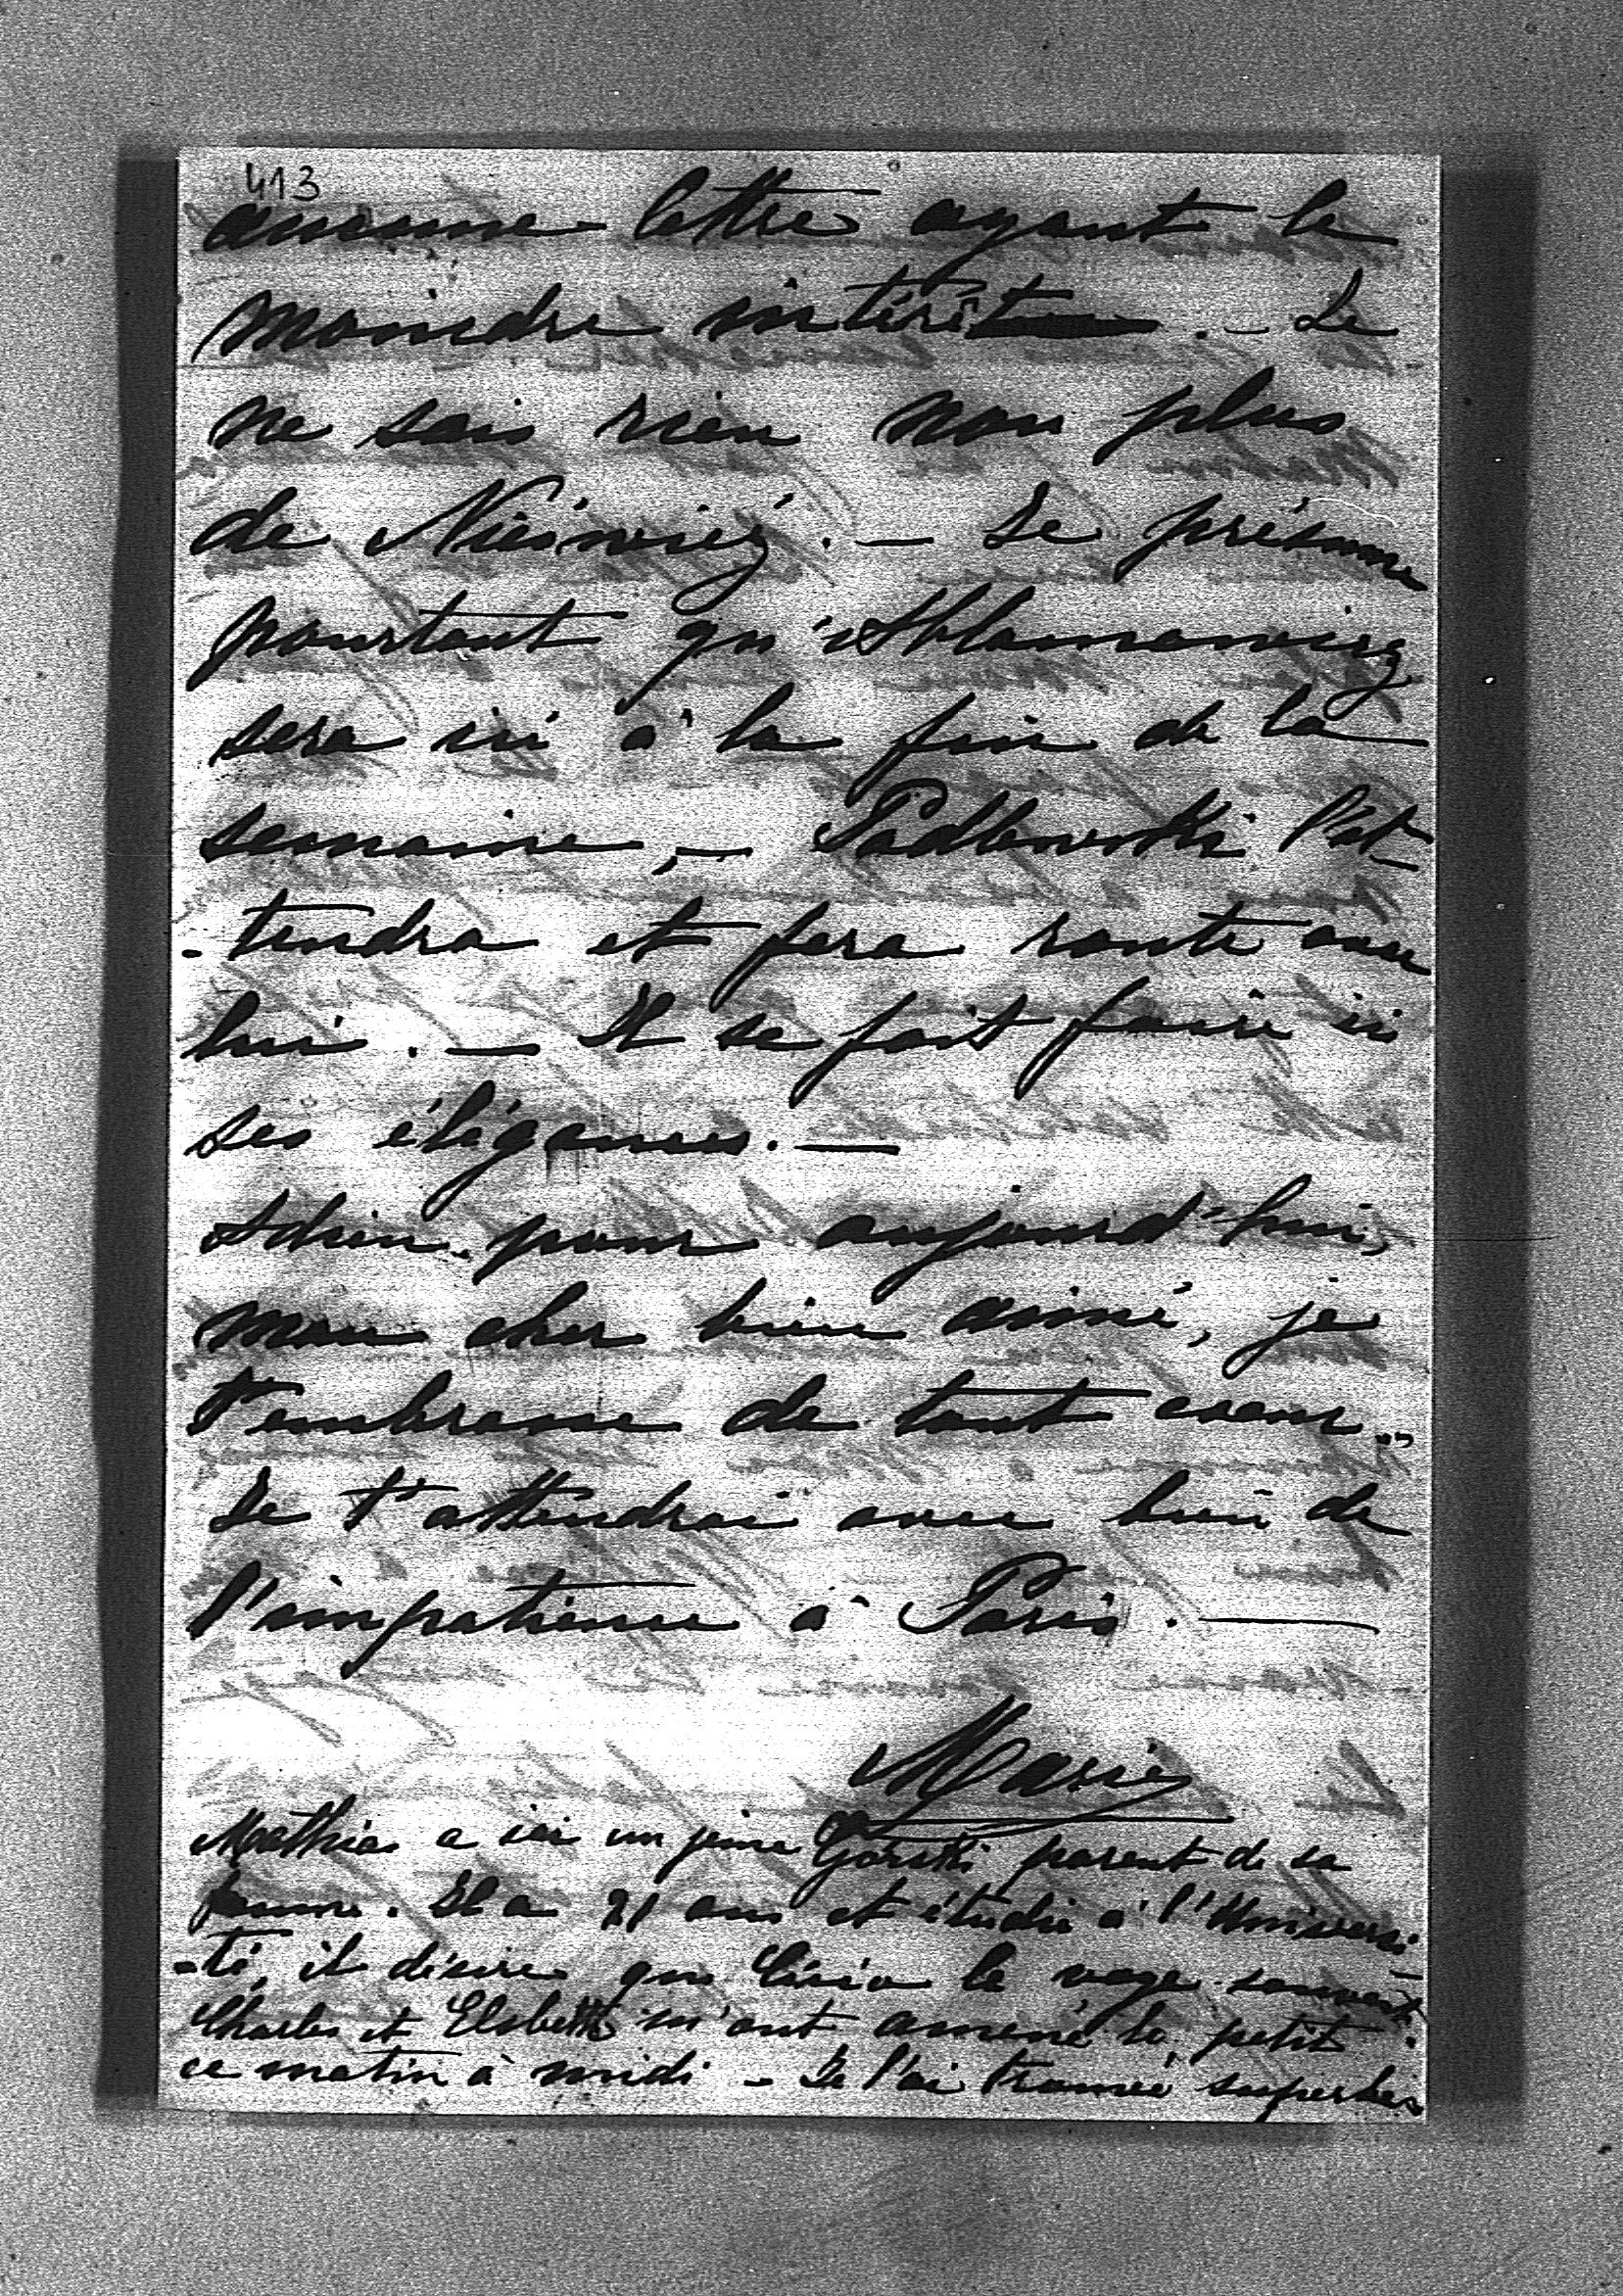 413
aucune lettre ayant le
moindre intérêt . — Je
ne sais rien non plus
de Nieświéż . — Je présume
pourtant qu'Ablamowicz
sera ici à la fin de la
semaine, — Padlewski l'at-
-tendra et fera route avec
lui . — Il se fait faire ici
ses élégances. —
Adieu pour aujourd'hui,
mon cher bien aimé, je
t'embrasse de tout coeur. „
Je t'attendrai avec bien de
l'impatience à Paris . —
Marie
Mathias a ici un jeune Gorski parent de sa
femme. Il a 21 ans et étudie à l'Universi-
-té, il désire que le voye souvent.
Charles et Elsbeth m'ont amené le petit
ce matin à midi — Je l'ai trouvé superbe